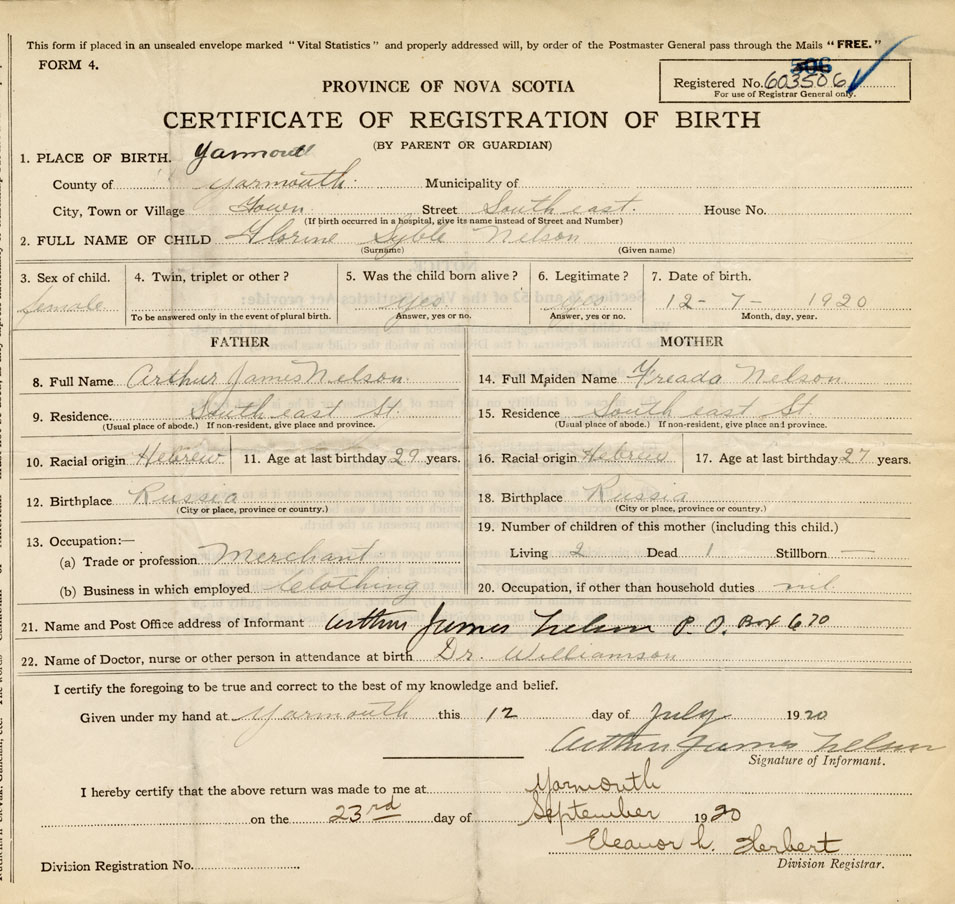 This form if placed in an unsealed envelope marked "Vital Statistics" and properly addressed will, by order of the Postmaster General pass through the Mails "FREE."
FORM 4.
Registered No. 603506
506
For use of Registrar General only.
PROVINCE OF NOVA SCOTIA
CERTIFICATE OF REGISTRATION OF BIRTH
(BY PARENT OR GUARDIAN)
1. PLACE OF BIRTH. Yarmouth
County of Yarmouth. Municipality of
City, Town or Village Town Street South east. House No.
(If birth occurred in a hospital, give its name instead of Street and Number)
2. FULL NAME OF CHILD Florine Syble Nelson
(Surname) (Given name)
3. Sex of child. 4. Twin, triplet or other? 5. Was the child born alive? 6. Legitimate? 7. Date of birth.
female yes. yes 12- 7- 1920
To be answered only in the event of plural birth. Answer, yes or no. Answer, yes or no. Month, day, year.
FATHER MOTHER
8. Full Name Arthur James Nelson 14. Full Maiden Name Freada Nelson
9. Residence. South east St. 15. Residence South east St
(Usual place of abode.) If non-resident, give place and province. (Usual place of abode.) If non-resident, give place and province.
10. Racial origin Hebrew 11. Age at last birthday 29 years. 16. Racial origin Hebrew 17. Age at last birthday 27 years.
12. Birthplace Russia 18. Birthplace Russia
(City or place, province or country.) (City or place, province or country.)
13. Occupation:— 19. Number of children of this mother (including this child.)
(a) Trade or profession Merchant Living 2 Dead 1 Stillborn —
(b) Business in which employed Clothing 20. Occupation, if other than household duties nil
21. Name and Post Office address of Informant Arthur James Nelson P. O. Box 670
22. Name of Doctor, nurse or other person in attendance at birth Dr. Williamson
I certify the foregoing to be true and correct to the best of my knowledge and belief.
Given under my hand at Yarmouth this 12 day of July 1920
Arthur James Nelson
Signature of Informant.
I hereby certify that the above return was made to me at Yarmouth
on the 23rd day of September 1920
Eleanor L. Herbert
Division Registration No. Division Registrar.